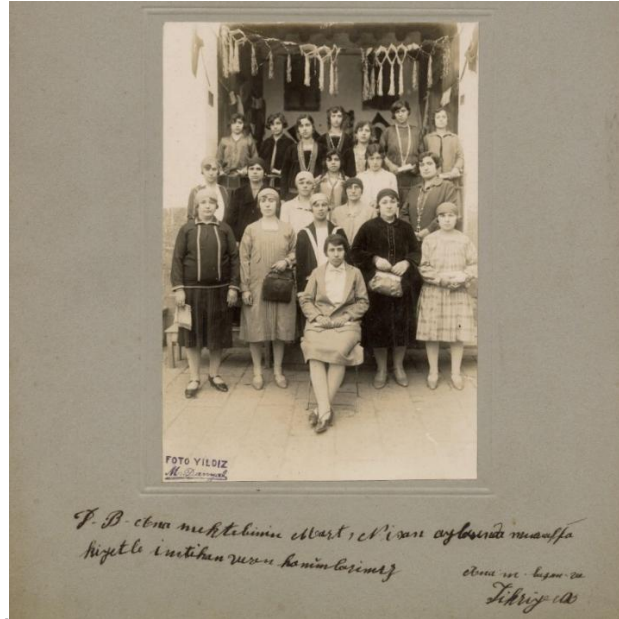 FOTO YILDIZ
M.
D-B- Ana mektebinin Mart, Nisan aylarında muvaffa
kiyetle imtihan veren hanımlarımız
Ana m.
Fikriye